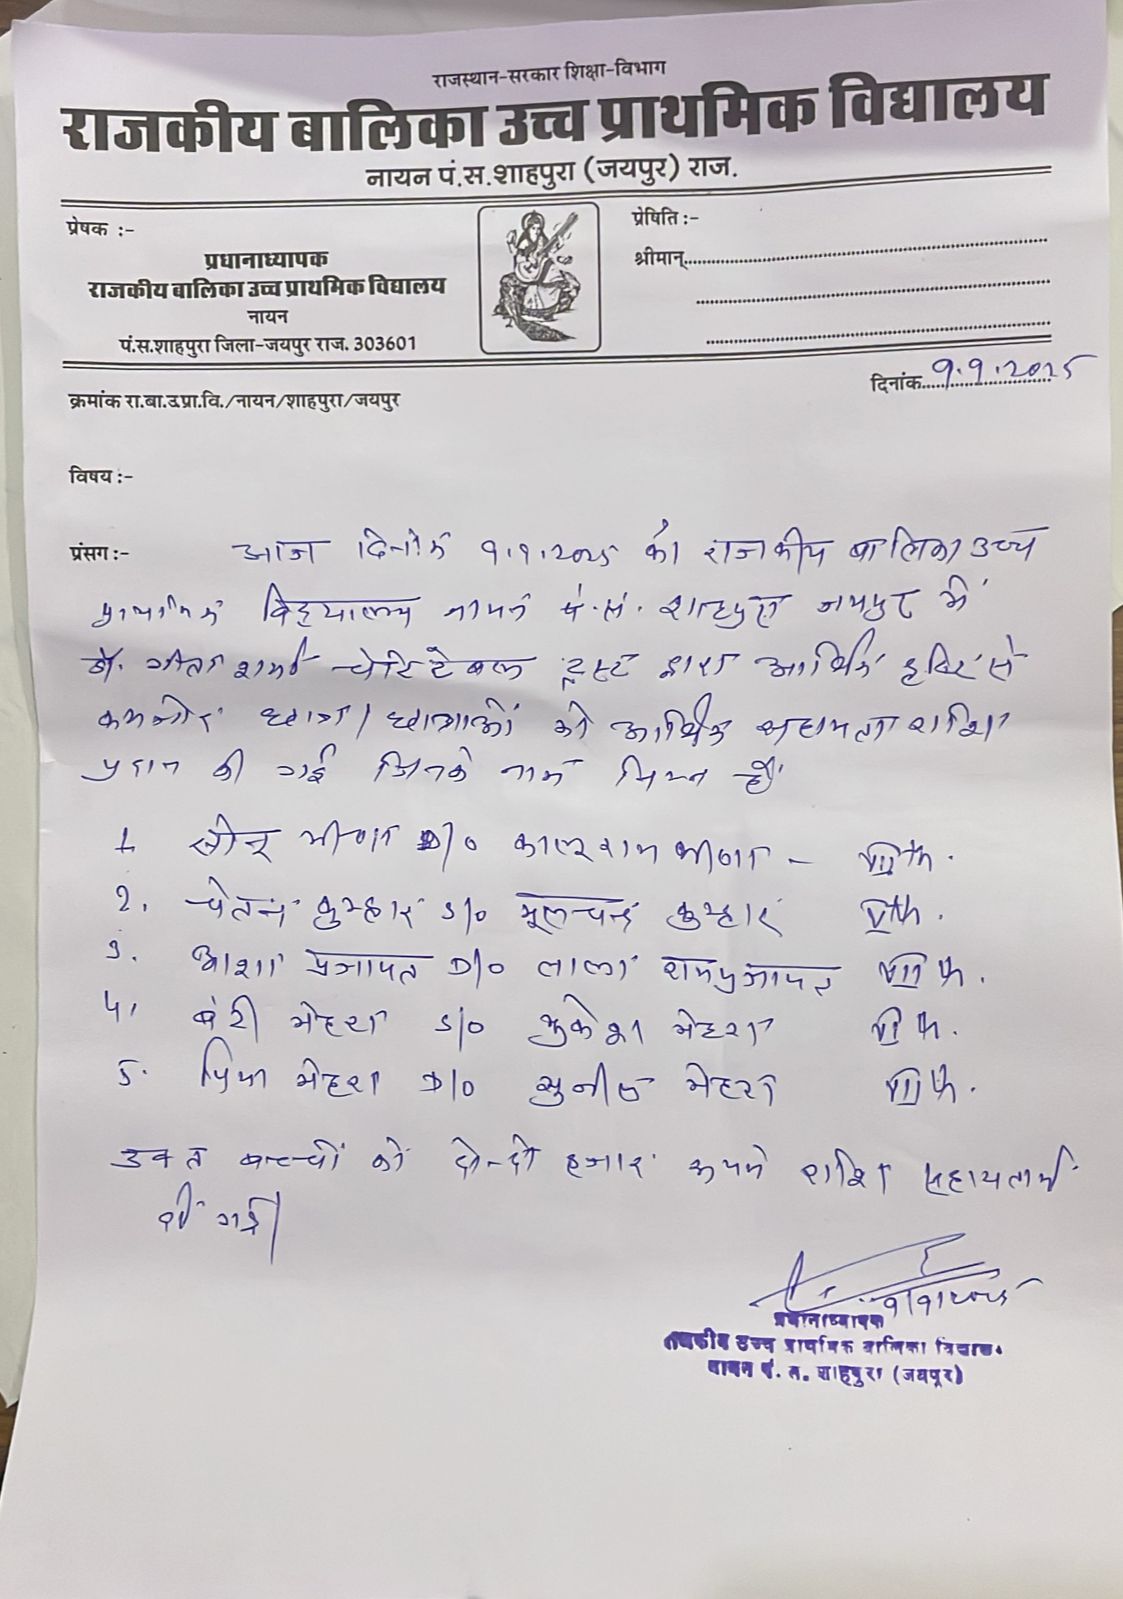 राजस्थान-सरकार शिक्षा-विभाग
राजकीय बालिका उच्च प्राथमिक विद्यालय
नायन पं.स.शाहपुरा (जयपुर) राज.
प्रेषक :-
प्रधानाध्यापक
राजकीय बालिका उच्च प्राथमिक विद्यालय
नायन
पं.स.शाहपुरा जिला-जयपुर राज. 303601
प्रेषिति :-
श्रीमान्
दिनांक 9.9.2025
क्रमांक रा.बा.उ.प्रा.वि./नायन/शाहपुरा/जयपुर
विषय :-
प्रंसग :- आज दिनांक 9.9.2025 को राजकीय बालिका उच्च
प्राथमिक विद्यालय नायन पं.सं. शाहपुरा जयपुर में
डॉ. गीता शर्मा चेरिटेबल ट्रस्ट द्वारा आर्थिक दृष्टि से
कमजोर छात्र/छात्राओं को आर्थिक सहायता राशि
प्रदान की गई जिनके नाम निम्न हैं
1. सोनू मीणा D/o कालूराम मीणा - VIIth.
2. चेतन कुम्हार S/o मूलचन्द कुम्हार Vth.
3. आशा प्रजापत D/o लाला रामप्रजापत VIIth.
4. बंटी मेहरा S/o मुकेश मेहरा th.
5. प्रिया मेहरा D/o सुनील मेहरा th.
उक्त बच्चों को दो-दो हजार रूपये राशि सहायतार्थ
दी गई।
9/9/2025
प्रधानाध्यापक
राजकीय उच्च प्राथमिक बालिका विद्यालय
नायन पं. स. शाहपुरा (जयपुर)